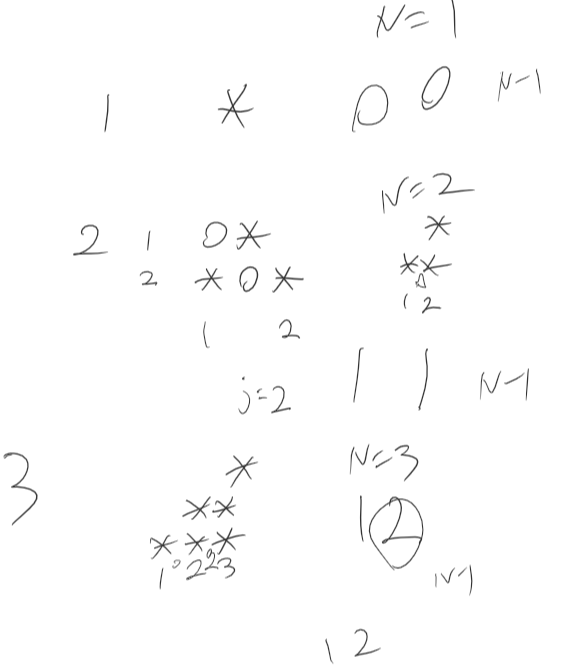 N=1
1 * 0 0 N-1
N=2
*
2 1 0*
2 *0* **
1 2
1 2
j=2 1 1 N-1
3 * N=3
** 1 2
***
1 2 3
N-1
1 2